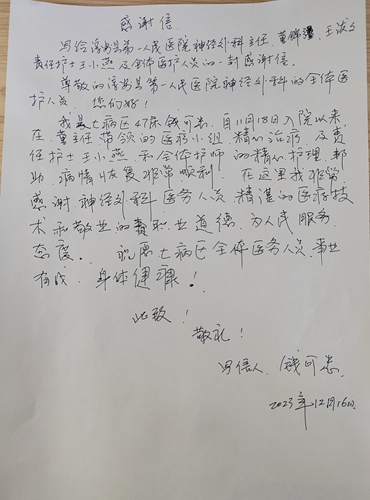 感谢信
写给涟水县第一人民医院神经外科主任 董锦
责任护士王小燕及全体医护人员的一封感谢信。
尊敬的涟水县第一人民医院神经外科的全体医
护人员、您们好!
我是七病区47床钱可忠、自11月18日入院以来,
在 董主任带领的医疗小组 精心治疗 及责
任护士王小燕 和全体护师 的精心护理、帮
助、病情恢复非常顺利、在这里我非常
感谢神经外科医务人员 精湛的医疗技
术和敬业的 职业道德、为人民服务
态度. 祝愿七病区全体医务人员 事业
有成、身体健康!
此致!
敬礼!
写信人、钱可忠、
2023年12月16日.